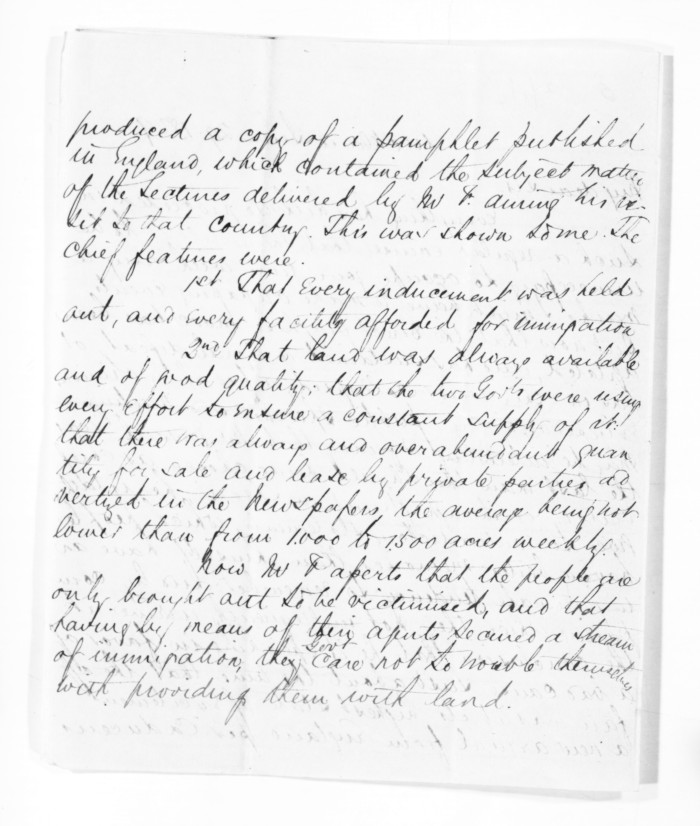 produced a copy of a pamphlet published
in England, which contained the subject matter
of the Lectures delivered by Mr F. during his vi-
sit to that country. This was shown to me. The
chief features were.
1st That every inducement was held
out, and every facility afforded for immigration
2nd That land was always available
and of good quality; that the two Govts were using
every effort to ensure a constant supply of it:
that there was always and overabundant quan
tity for sale and lease by private parties ad
vertized in the Newspapers, the average being not
lower than from 1000 to 1500 acres weekly.
Now Mr F asserts that the people are
only brought out to be victimised, and that
having by means of their agents secured a stream
of immigration, they Govt care not to trouble themselves
with providing them with land.